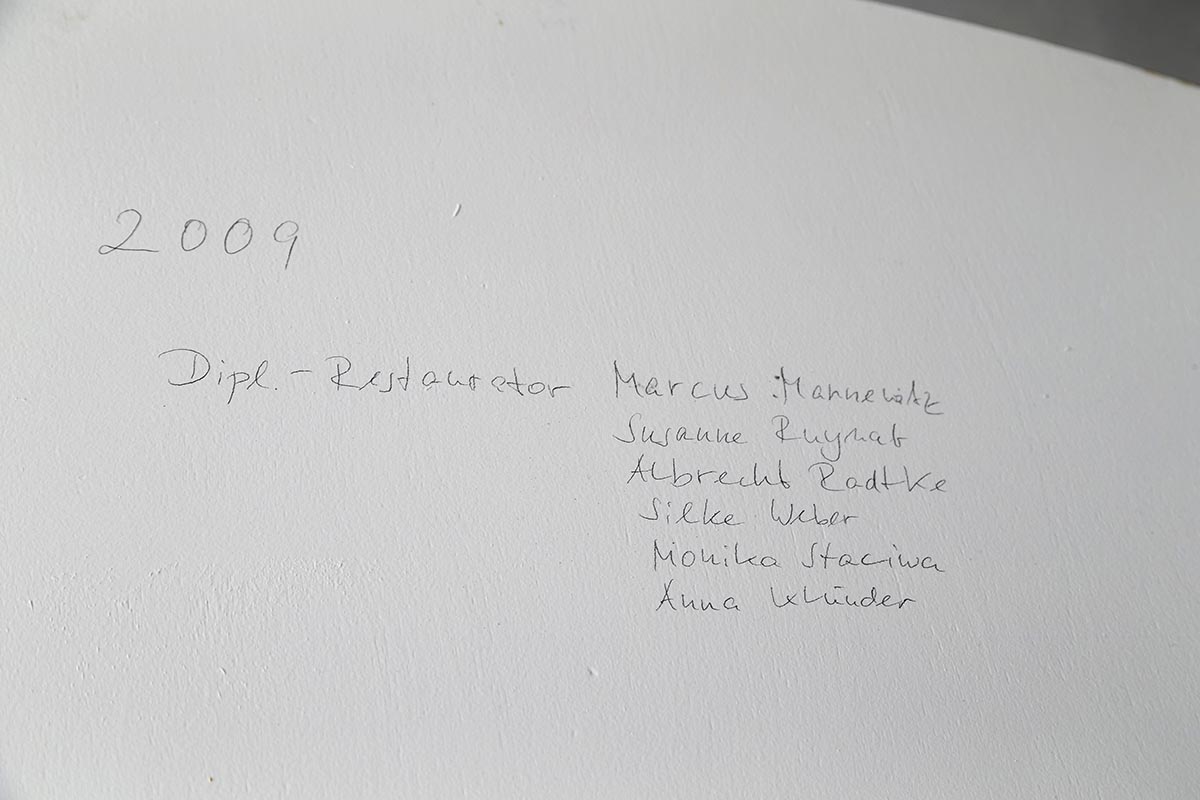 2009
Dipl.-Restaurator Marcus Mannewitz
Susanne
Albrecht Radtke
Silke Weber
Monika Staciwa
Anna Klünder